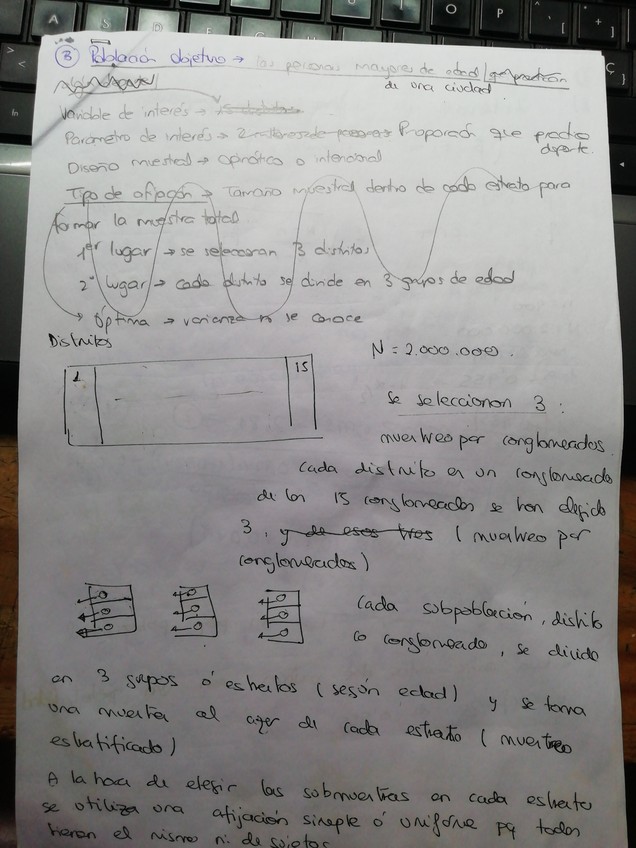 ③ Población objetivo → las personas mayores de edad
de una ciudad.
Variable de interés →
Parámetro de interés → Proporción que practica
deporte.
Diseño muestral → opinático o intencional
Tipo de afijación → Tamaño muestral dentro de cada estrato para
formar la muestra total
1er lugar → se seleccionan 3 distritos
2º lugar → cada distrito se divide en 3 grupos de edad
Óptima → varianza no se conoce
Distritos
N = 2.000.000.
1 15
se seleccionan 3 :
muestreo por conglomerados.
cada distrito es un conglomerado
de los 15 conglomerados se han elegido
3, y de esos tres (muestreo por
conglomerados)
cada subpoblación, distrito
o conglomerado, se divide
en 3 grupos ó estratos (según edad) y se toma
una muestra al azar de cada estrato (muestreo
estratificado)
A la hora de elegir las submuestras en cada estrato
se utiliza una afijación simple ó uniforme pq todos
tienen el mismo nº de sujetos